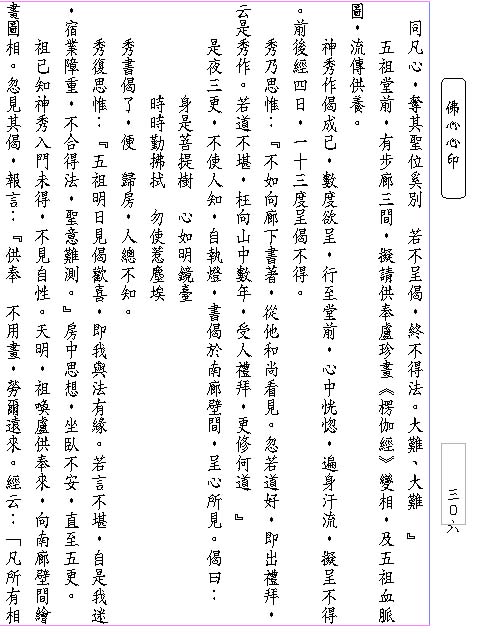 同凡心，奪其聖位奚別　若不呈偈，終不得法。大難、大難　』
五祖堂前，有步廊三間，擬請供奉盧珍畫《楞伽經》變相，及五祖血脈
圖，流傳供養。
神秀作偈成已，數度欲呈，行至堂前，心中恍惚，遍身汗流，擬呈不得
。前後經四日，一十三度呈偈不得。
秀乃思惟：『不如向廊下書著，從他和尚看見。忽若道好，即出禮拜，
云是秀作。若道不堪，枉向山中數年，受人禮拜，更修何道　』
是夜三更，不使人知，自執燈，書偈於南廊壁間，呈心所見。偈曰：
身是菩提樹　心如明鏡臺
時時勤拂拭　勿使惹塵埃
秀書偈了，便　歸房，人總不知。
秀復思惟：『五祖明日見偈歡喜，即我與法有緣。若言不堪，自是我迷
，宿業障重，不合得法，聖意難測。』房中思想，坐臥不安，直至五更。
祖已知神秀入門未得，不見自性。天明，祖喚盧供奉來，向南廊壁間繪
畫圖相。忽見其偈，報言：『供奉　不用畫，勞爾遠來。經云：「凡所有相
佛心心印
三○六